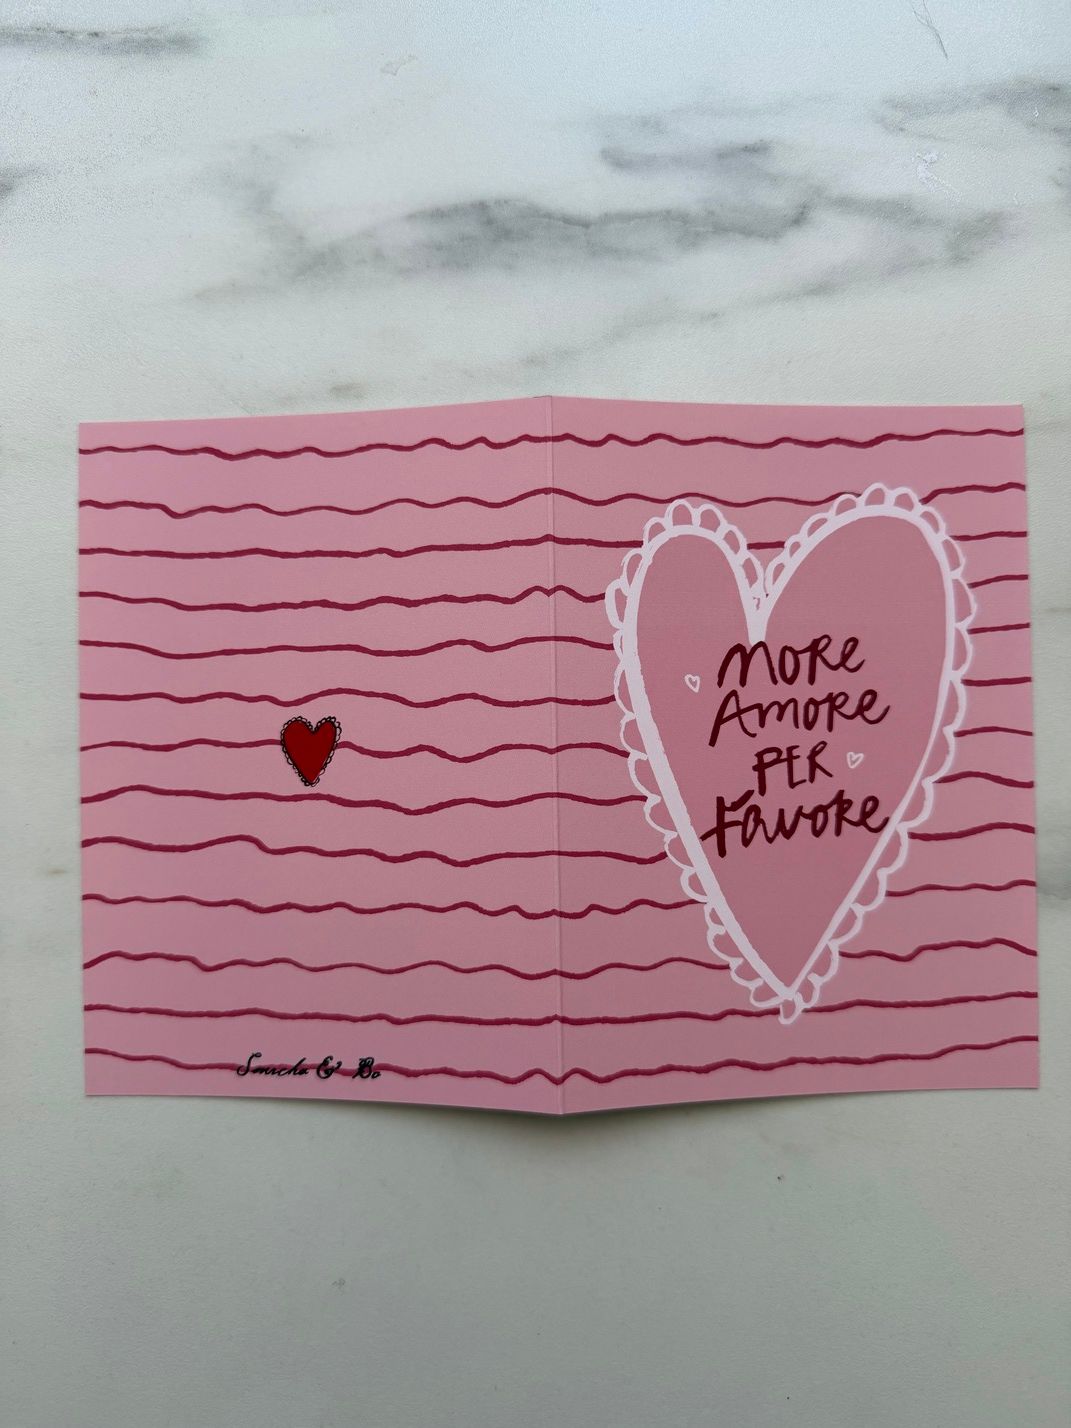 MORE
AMORE
PER
Favore
& Bo